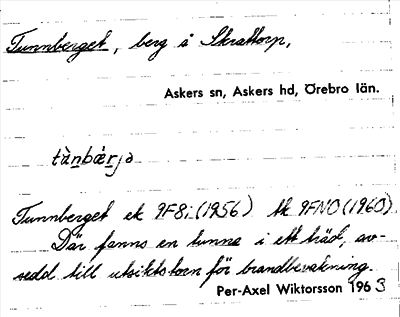 Tunnberget, berg å Skrattorp,
Askers sn, Askers hd, Örebro län.
tùnbæ̀rjə
Tunnberget ek 9F8i (1956) tk 9FNO (1960)
Där fanns en tunna i ett träd, av-
sedd till utsiktstorn för brandbevakning.
Per-Axel Wiktorsson 1963